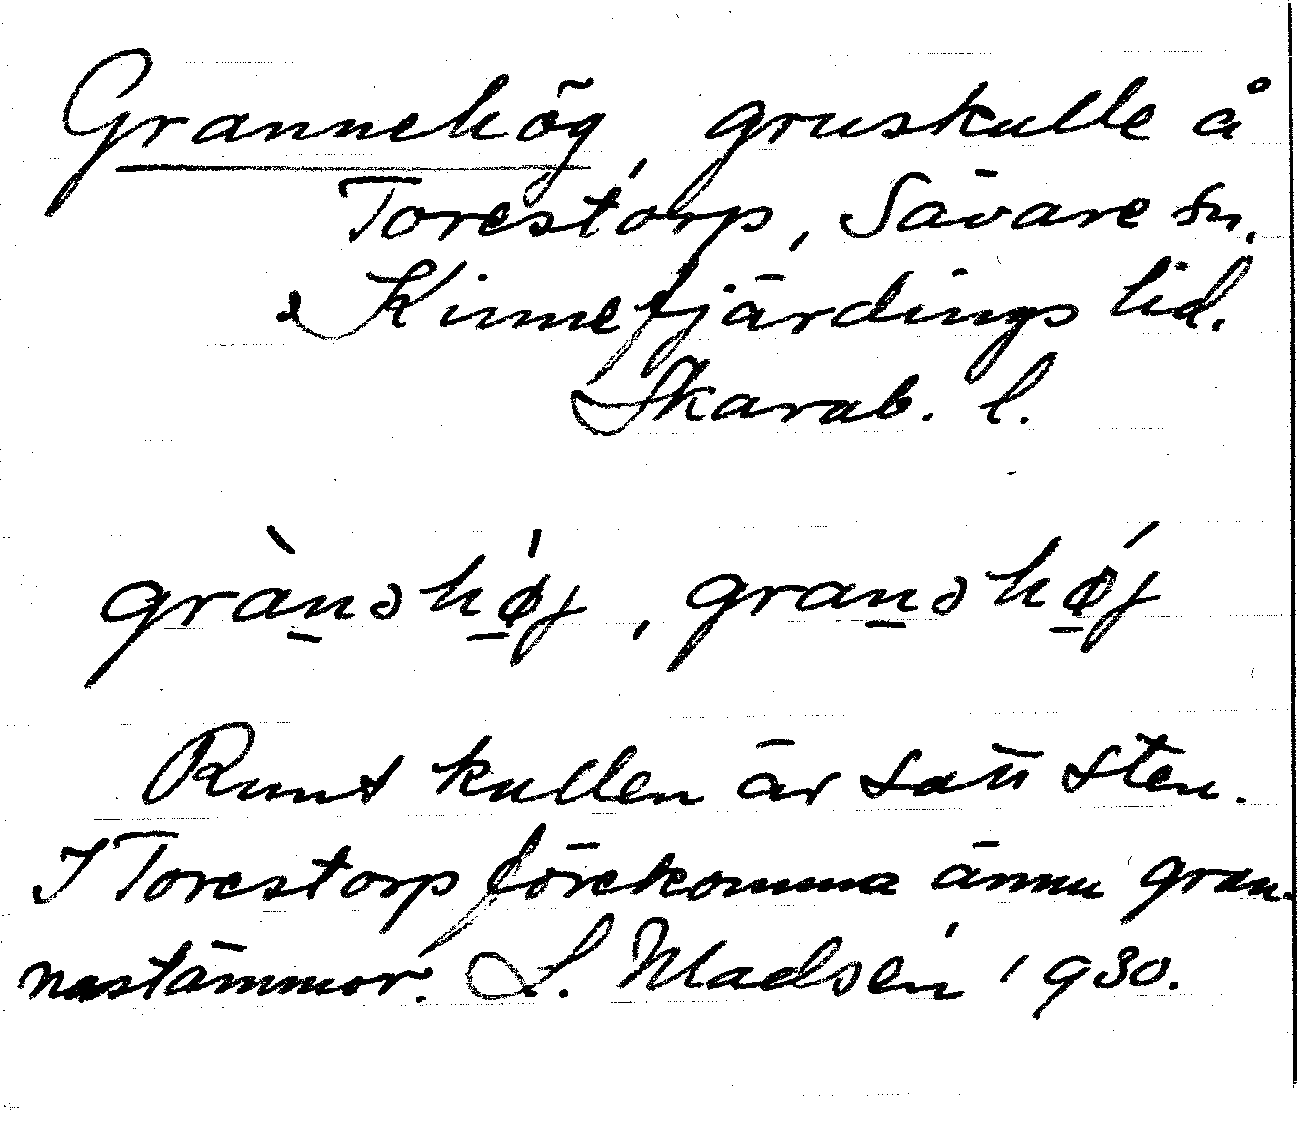 Grannehög, gruskulle å
Torestorp, Sävare sn,
Kinnefjärdings hd.
Skarab. l.
grànəhø̀j, granəhøj
Runt kullen är satt sten.
I Torestorp förekomma ännu gran-
nastämmor. S. Madsén 1930.